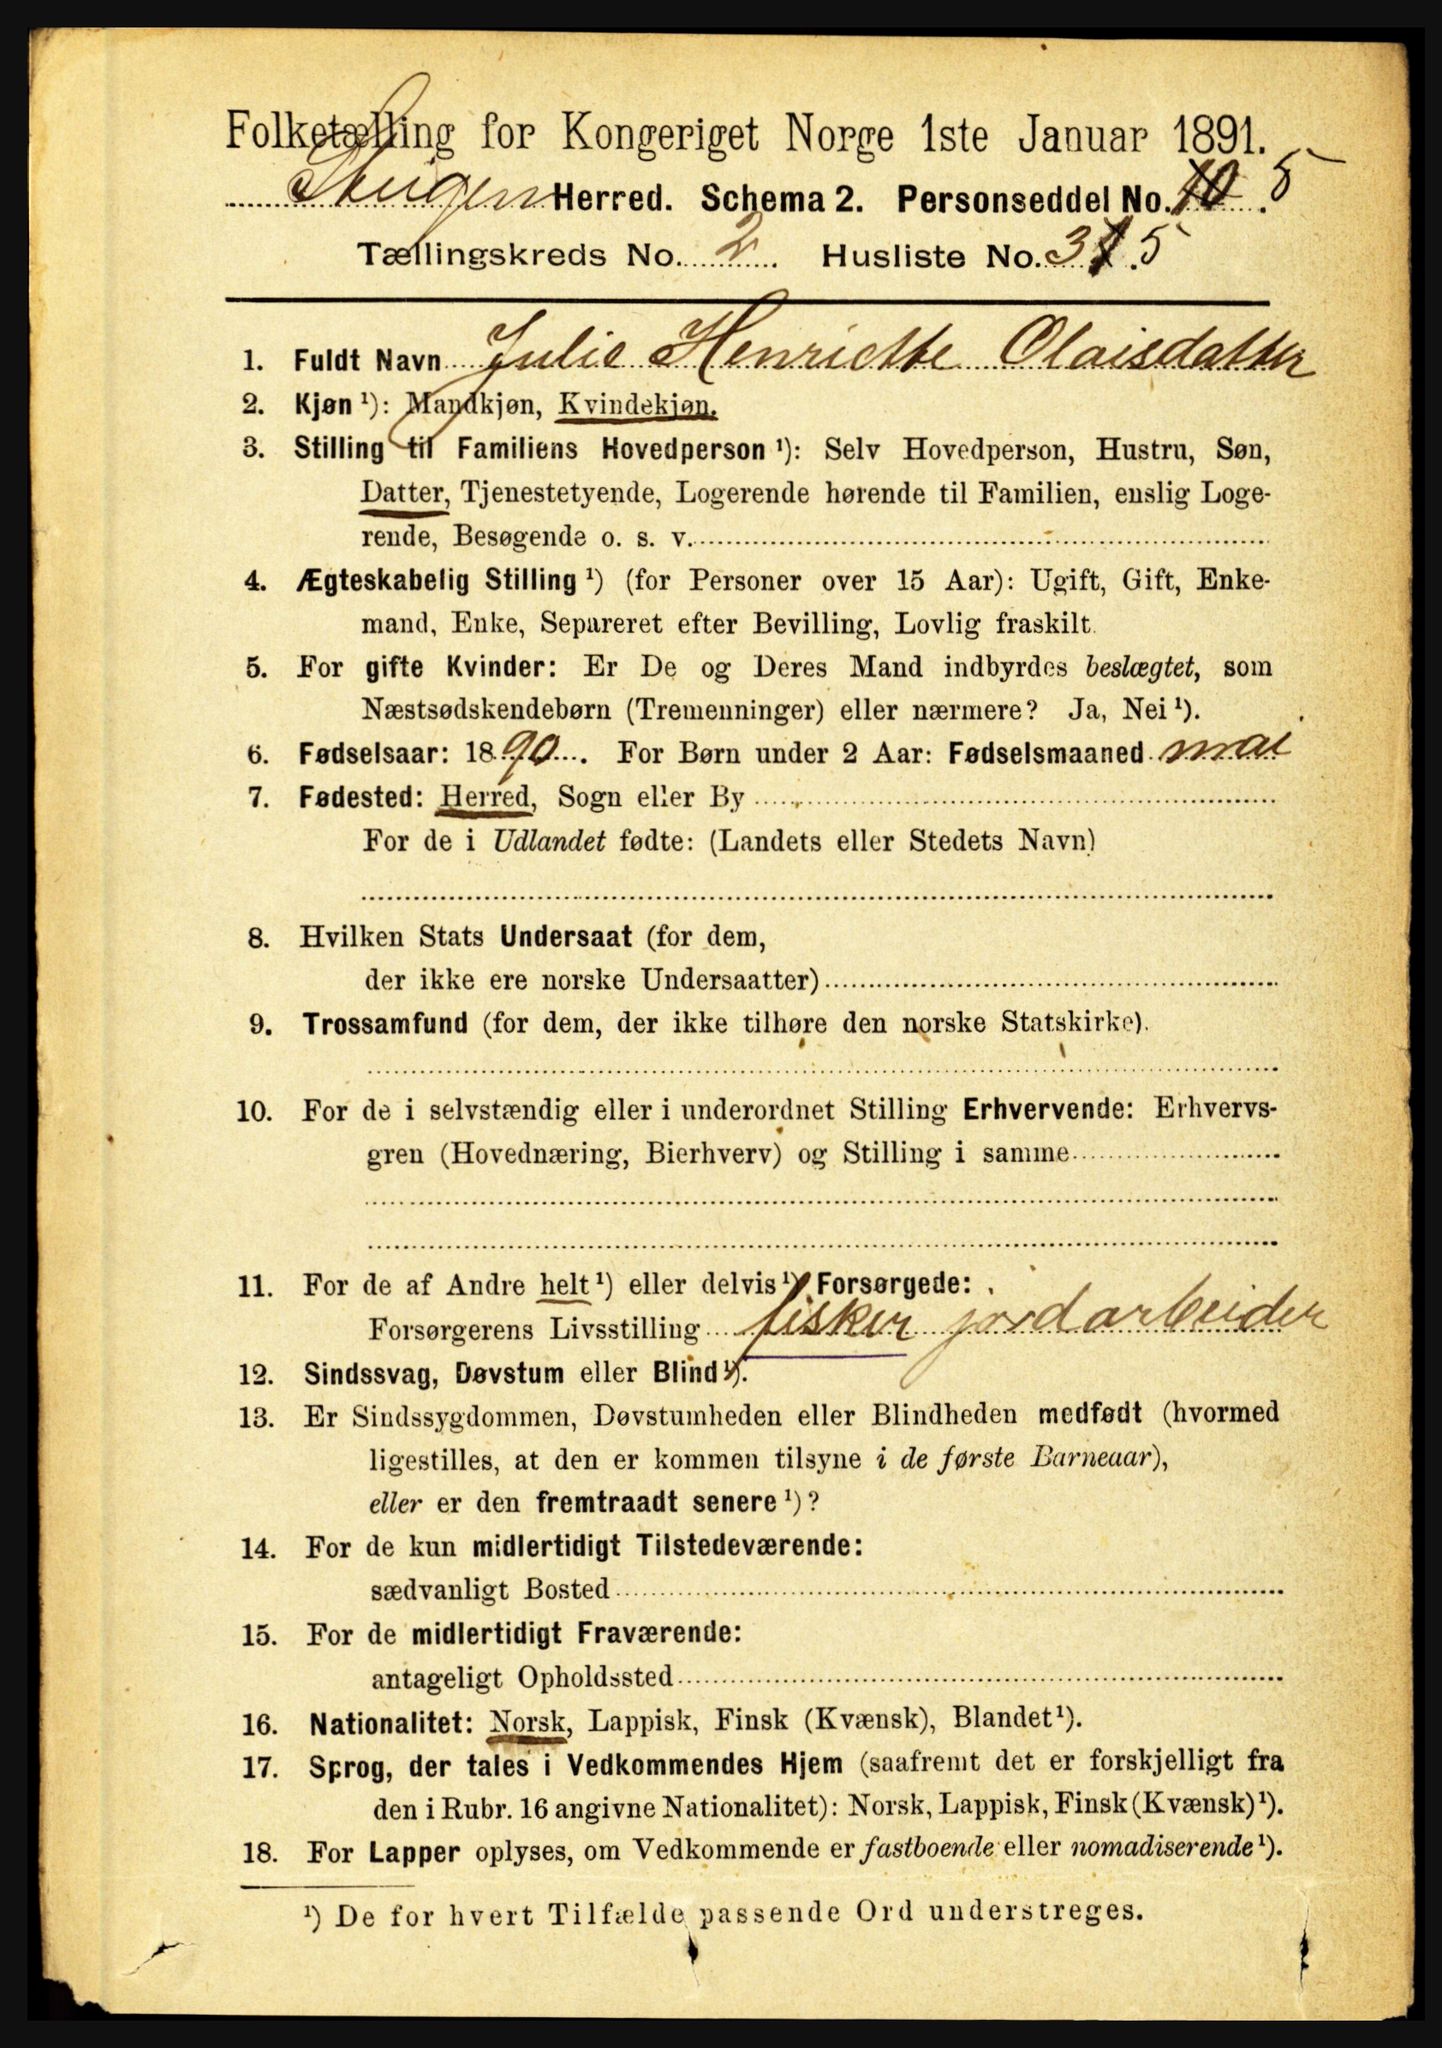 Folketælling for Kongeriget Norge 1ste Januar 1891.
Steigen Herred. Schema 2. Personseddel No. 10. 5
Tællingskreds No. 2. Husliste No. 31. 5
1. Fuldt Navn Julie Henriette Olaisdatter
2. Kjøn ¹): Mandkjøn, Kvindekjøn.
3. Stilling til Familiens Hovedperson ¹): Selv Hovedperson, Hustru, Søn,
Datter, Tjenestetyende, Logerende hørende til Familien, enslig Loge-
rende, Besøgende o. s. v.
4. Ægteskabelig Stilling ¹) (for Personer over 15 Aar): Ugift, Gift, Enke-
mand, Enke, Separeret efter Bevilling, Lovlig fraskilt.
5. For gifte Kvinder: Er De og Deres Mand indbyrdes beslægtet, som
Næstsødskendebørn (Tremenninger) eller nærmere? Ja, Nei ¹).
6. Fødselsaar: 1890. For Børn under 2 Aar: Fødselsmaaned mai
7. Fødested: Herred, Sogn eller By
For de i Udlandet fødte: (Landets eller Stedets Navn)
8. Hvilken Stats Undersaat (for dem,
der ikke ere norske Undersaatter)
9. Trossamfund (for dem, der ikke tilhøre den norske Statskirke).
10. For de i selvstændig eller i underordnet Stilling Erhvervende: Erhvervs-
gren (Hovednæring, Bierhverv) og Stilling i samme
11. For de af Andre helt ¹) eller delvis ¹) Forsørgede:
Forsørgerens Livsstilling fisker jordarbeider
12. Sindssvag, Døvstum eller Blind ¹).
13. Er Sindssygdommen, Døvstumheden eller Blindheden medfødt (hvormed
ligestilles, at den er kommen tilsyne i de første Barneaar),
eller er den fremtraadt senere ¹)?
14. For de kun midlertidigt Tilstedeværende:
sædvanligt Bosted
15. For de midlertidigt Fraværende:
antageligt Opholdssted
16. Nationalitet: Norsk, Lappisk, Finsk (Kvænsk), Blandet ¹).
17. Sprog, der tales i Vedkommendes Hjem (saafremt det er forskjelligt fra
den i Rubr. 16 angivne Nationalitet): Norsk, Lappisk, Finsk (Kvænsk) ¹).
18. For Lapper oplyses, om Vedkommende er fastboende eller nomadiserende ¹).
¹) De for hvert Tilfælde passende Ord understreges.